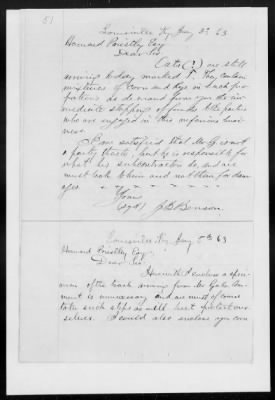 51
Louisville Ky Jany 3d 63
Howard Priestly Esq
Dear Sir
Oats (?) are still
arriving today marked T. They contain
mixtures of Corn and Rye in such pro
portions as demand from you the im
mediate stopping of the
who are engaged in this nefarious busi
ness.
I am satisfied that Mr G is not
a party thereto but he is responsible for
what his subcontractors do, and we
must look to him and not them for dam
ages
Yours
(sgd) J B Benson
Louisville Ky Jany 5th 63
Howard Priestly Esq
Dear Sir
Herewith I enclose a speci
men of the arriving from Mr Com
ment is unnecessary and we must of course
take such steps as will best protect our
selves. I would also enclose you